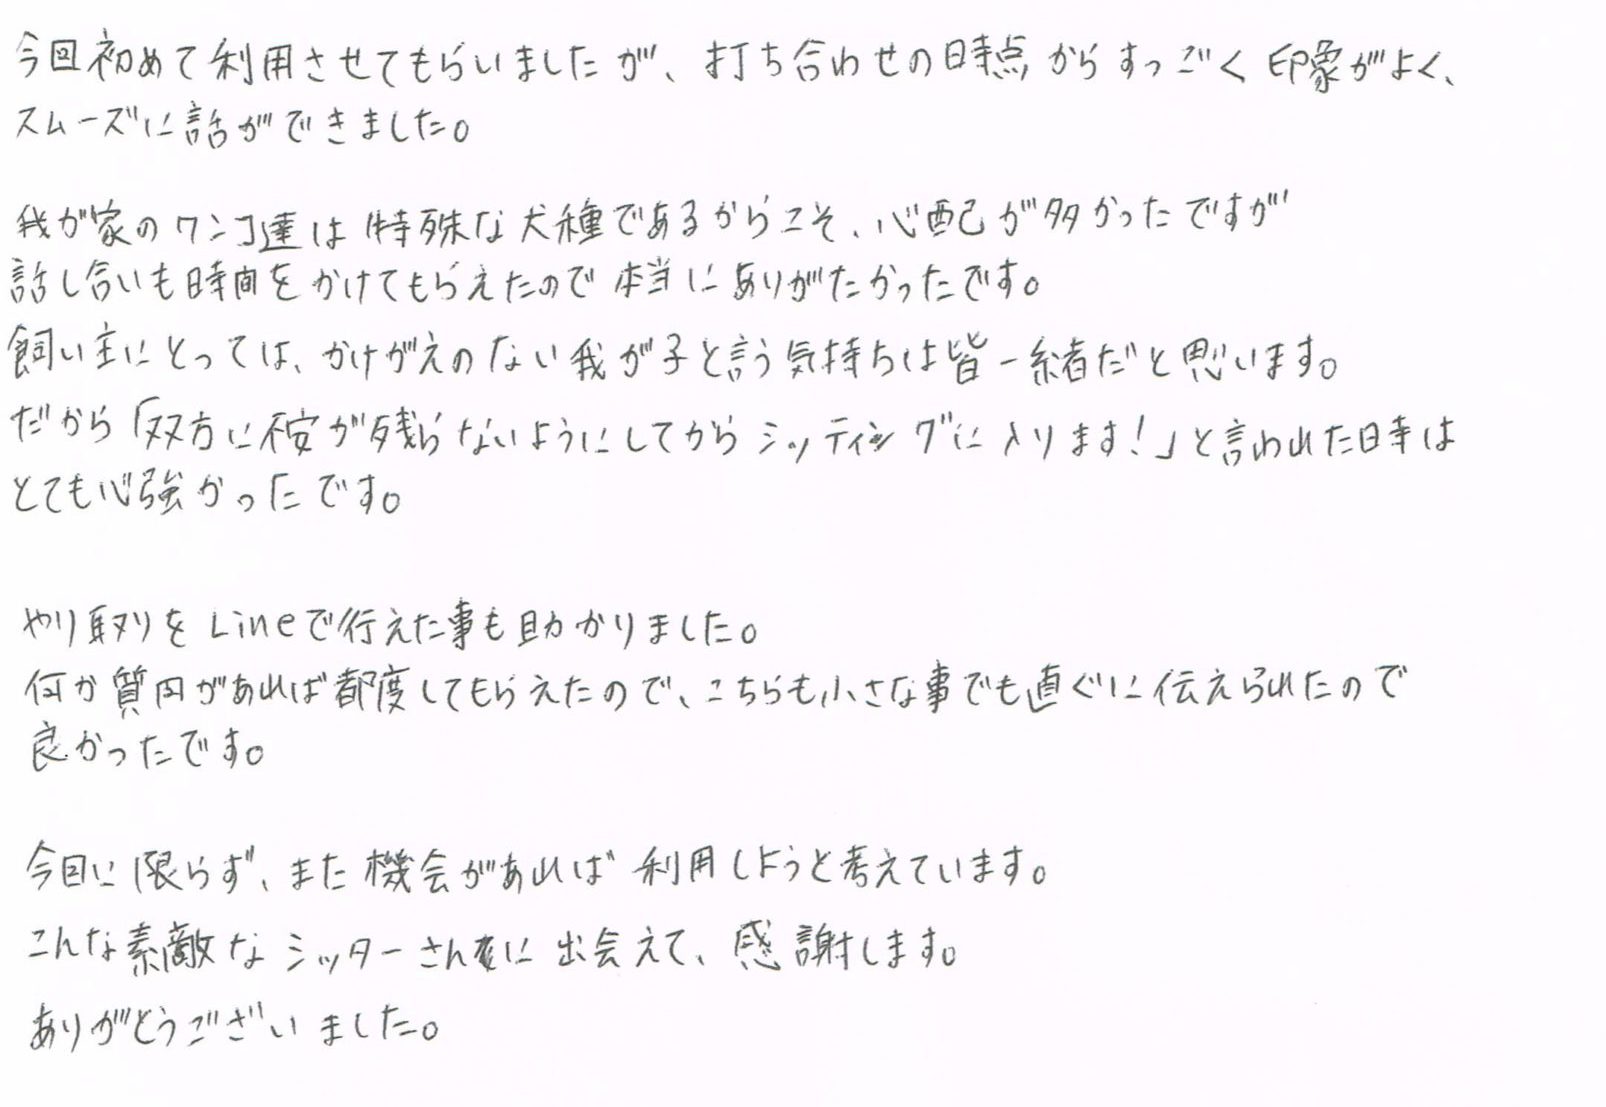 今回初めて利用させてもらいましたが、打ち合わせの時点からすっごく印象がよく、
スムーズに話ができました。
我が家のワンコ達は特殊な犬種であるからこそ、心配が多かったですが
話し合いも時間をかけてもらえたので本当にありがたかったです。
飼い主にとっては、かけがえのない我が子と言う気持ちは皆一緒だと思います。
だから「双方に不安が残らないようにしてからシッティングに入ります!」と言われた時は
とても心強かったです。
やり取りをLineで行えた事も助かりました。
何か質問があれば都度してもらえたので、こちらも小さな事でも直ぐに伝えられたので
良かったです。
今回に限らず、また機会があれば利用しようと考えています。
こんな素敵なシッターさんに出会えて、感謝します。
ありがとうございました。